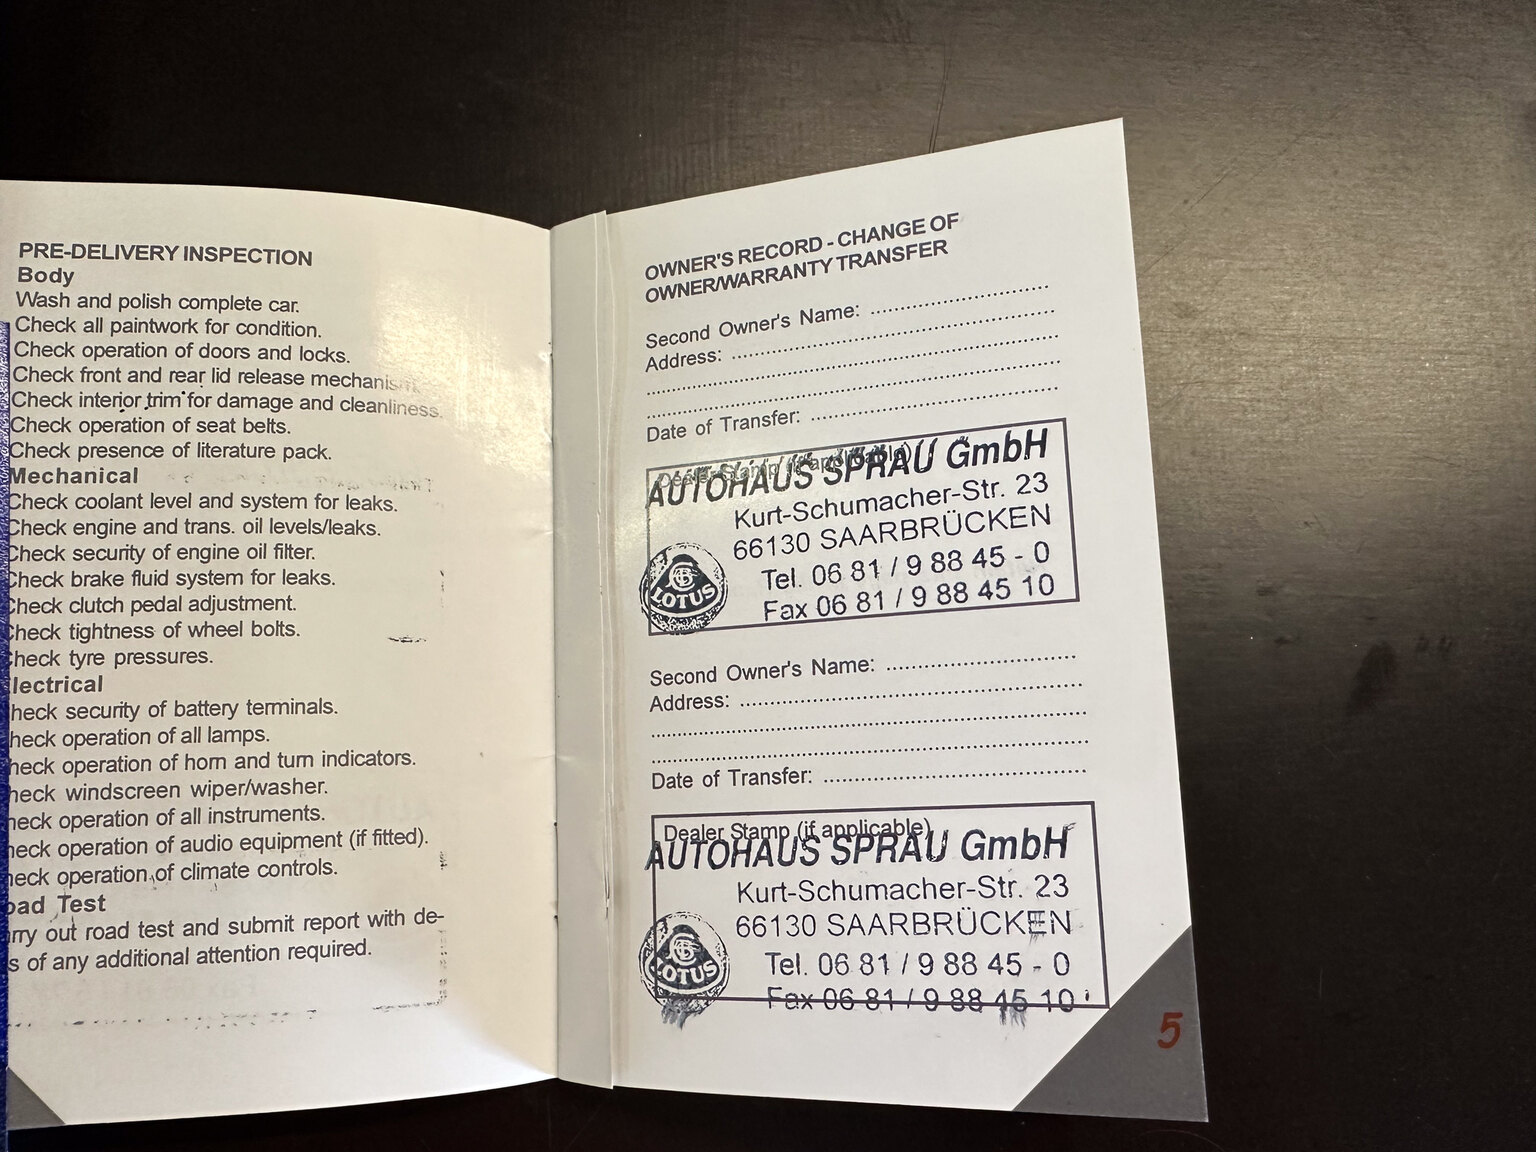 PRE-DELIVERY INSPECTION
Body
Wash and polish complete car.
Check all paintwork for condition.
Check operation of doors and locks.
Check front and rear lid release mechanism.
Check interior trim for damage and cleanliness.
Check operation of seat belts.
Check presence of literature pack.
Mechanical
Check coolant level and system for leaks.
Check engine and trans. oil levels/leaks.
Check security of engine oil filter.
Check brake fluid system for leaks.
Check clutch pedal adjustment.
Check tightness of wheel bolts.
heck tyre pressures.
lectrical
heck security of battery terminals.
heck operation of all lamps.
heck operation of horn and turn indicators.
heck windscreen wiper/washer.
heck operation of all instruments.
eck operation of audio equipment (if fitted).
eck operation of climate controls.
oad Test
rry out road test and submit report with de-
s of any additional attention required.
OWNER'S RECORD - CHANGE OF
OWNER/WARRANTY TRANSFER
Second Owner's Name:
Address:
Date of Transfer:
Dealer Stamp (if applicable)
AUTOHAUS SPRAU GmbH
Kurt-Schumacher-Str. 23
66130 SAARBRÜCKEN
Tel. 06 81 / 9 88 45 - 0
Fax 06 81 / 9 88 45 10
LOTUS
Second Owner's Name:
Address:
Date of Transfer:
Dealer Stamp (if applicable)
AUTOHAUS SPRAU GmbH
Kurt-Schumacher-Str. 23
66130 SAARBRÜCKEN
Tel. 06 81 / 9 88 45 - 0
Fax 06 81 / 9 88 45 10
LOTUS
5